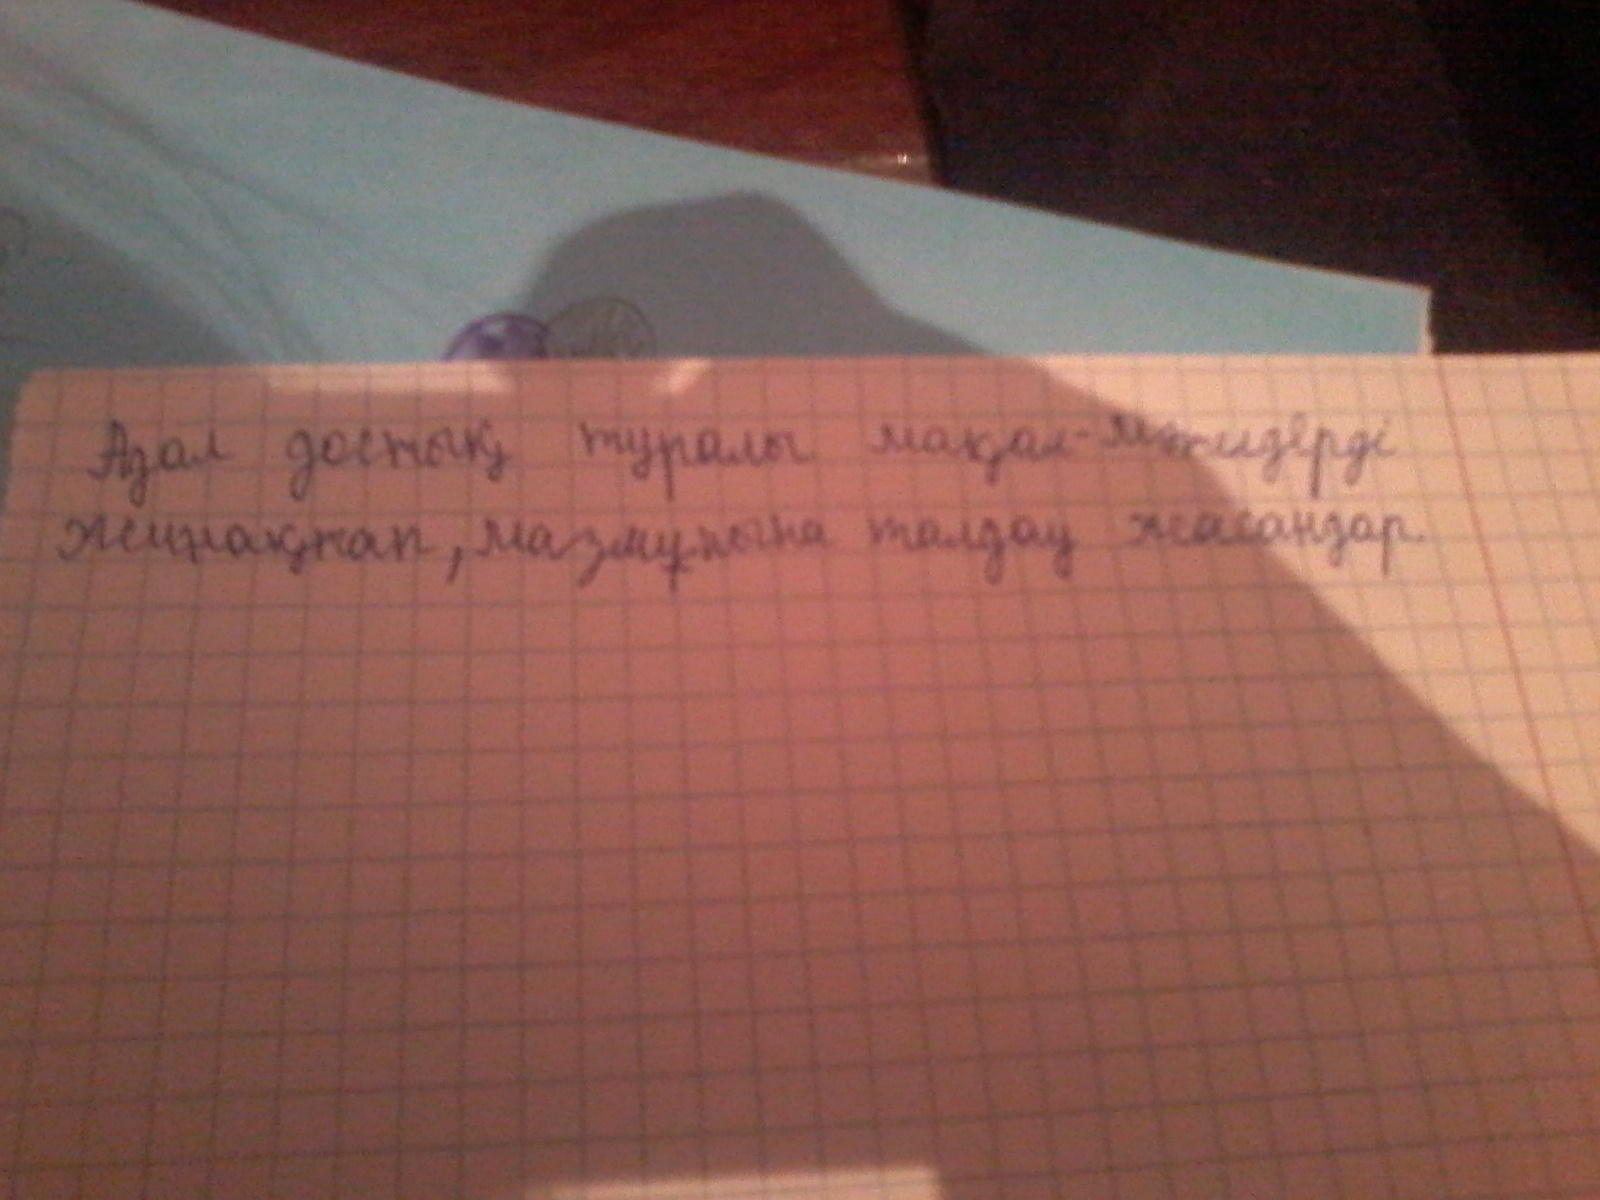 Адал достық туралы мақал-мәтелдерді
жинақтап, мазмұнына талдау жасаңдар.